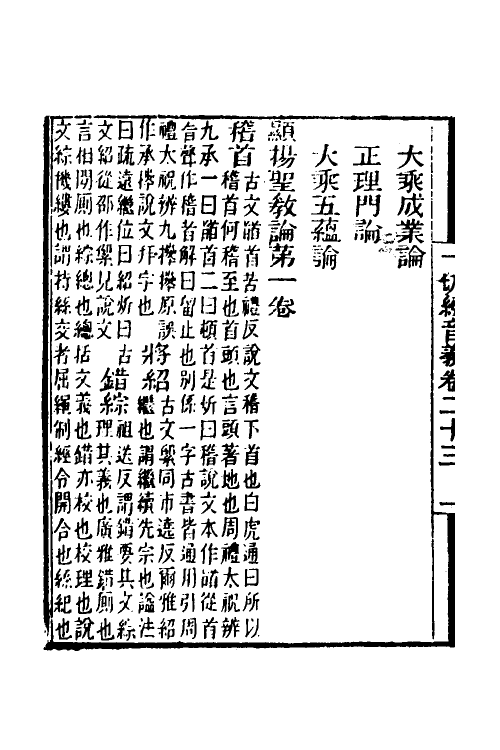 一切經音義卷二十三　一
大乘成業論
正理門論
大乘五蘊論
顯揚聖教論第一卷
稽首古文䭫首苦禮反說文稽下首也白虎通曰所以
稽首何稽至也首頭也言頭著地也周禮太祝辨
九承一曰䭫首二曰頓首是也炘曰稽說文本作䭫從首
旨聲作稽者解曰留止也別係一字古書皆通用引周
禮大祝辨九𢷎𢷎原誤
作承𢷎說文拜字也　引紹古文㡭同市遶反爾雅紹
繼也謂繼續先宗也謚法
曰疏遠繼位曰紹炘曰古
文紹從邵作㡭見說文　錯綜祖送反謂錯要其文綜
理其義也廣雅錯廁也
言相間廁也綜總也總括文義也錯亦校也校理也說
文綜機縷也謂持絲交者屈繩制經令開合也絲紀也